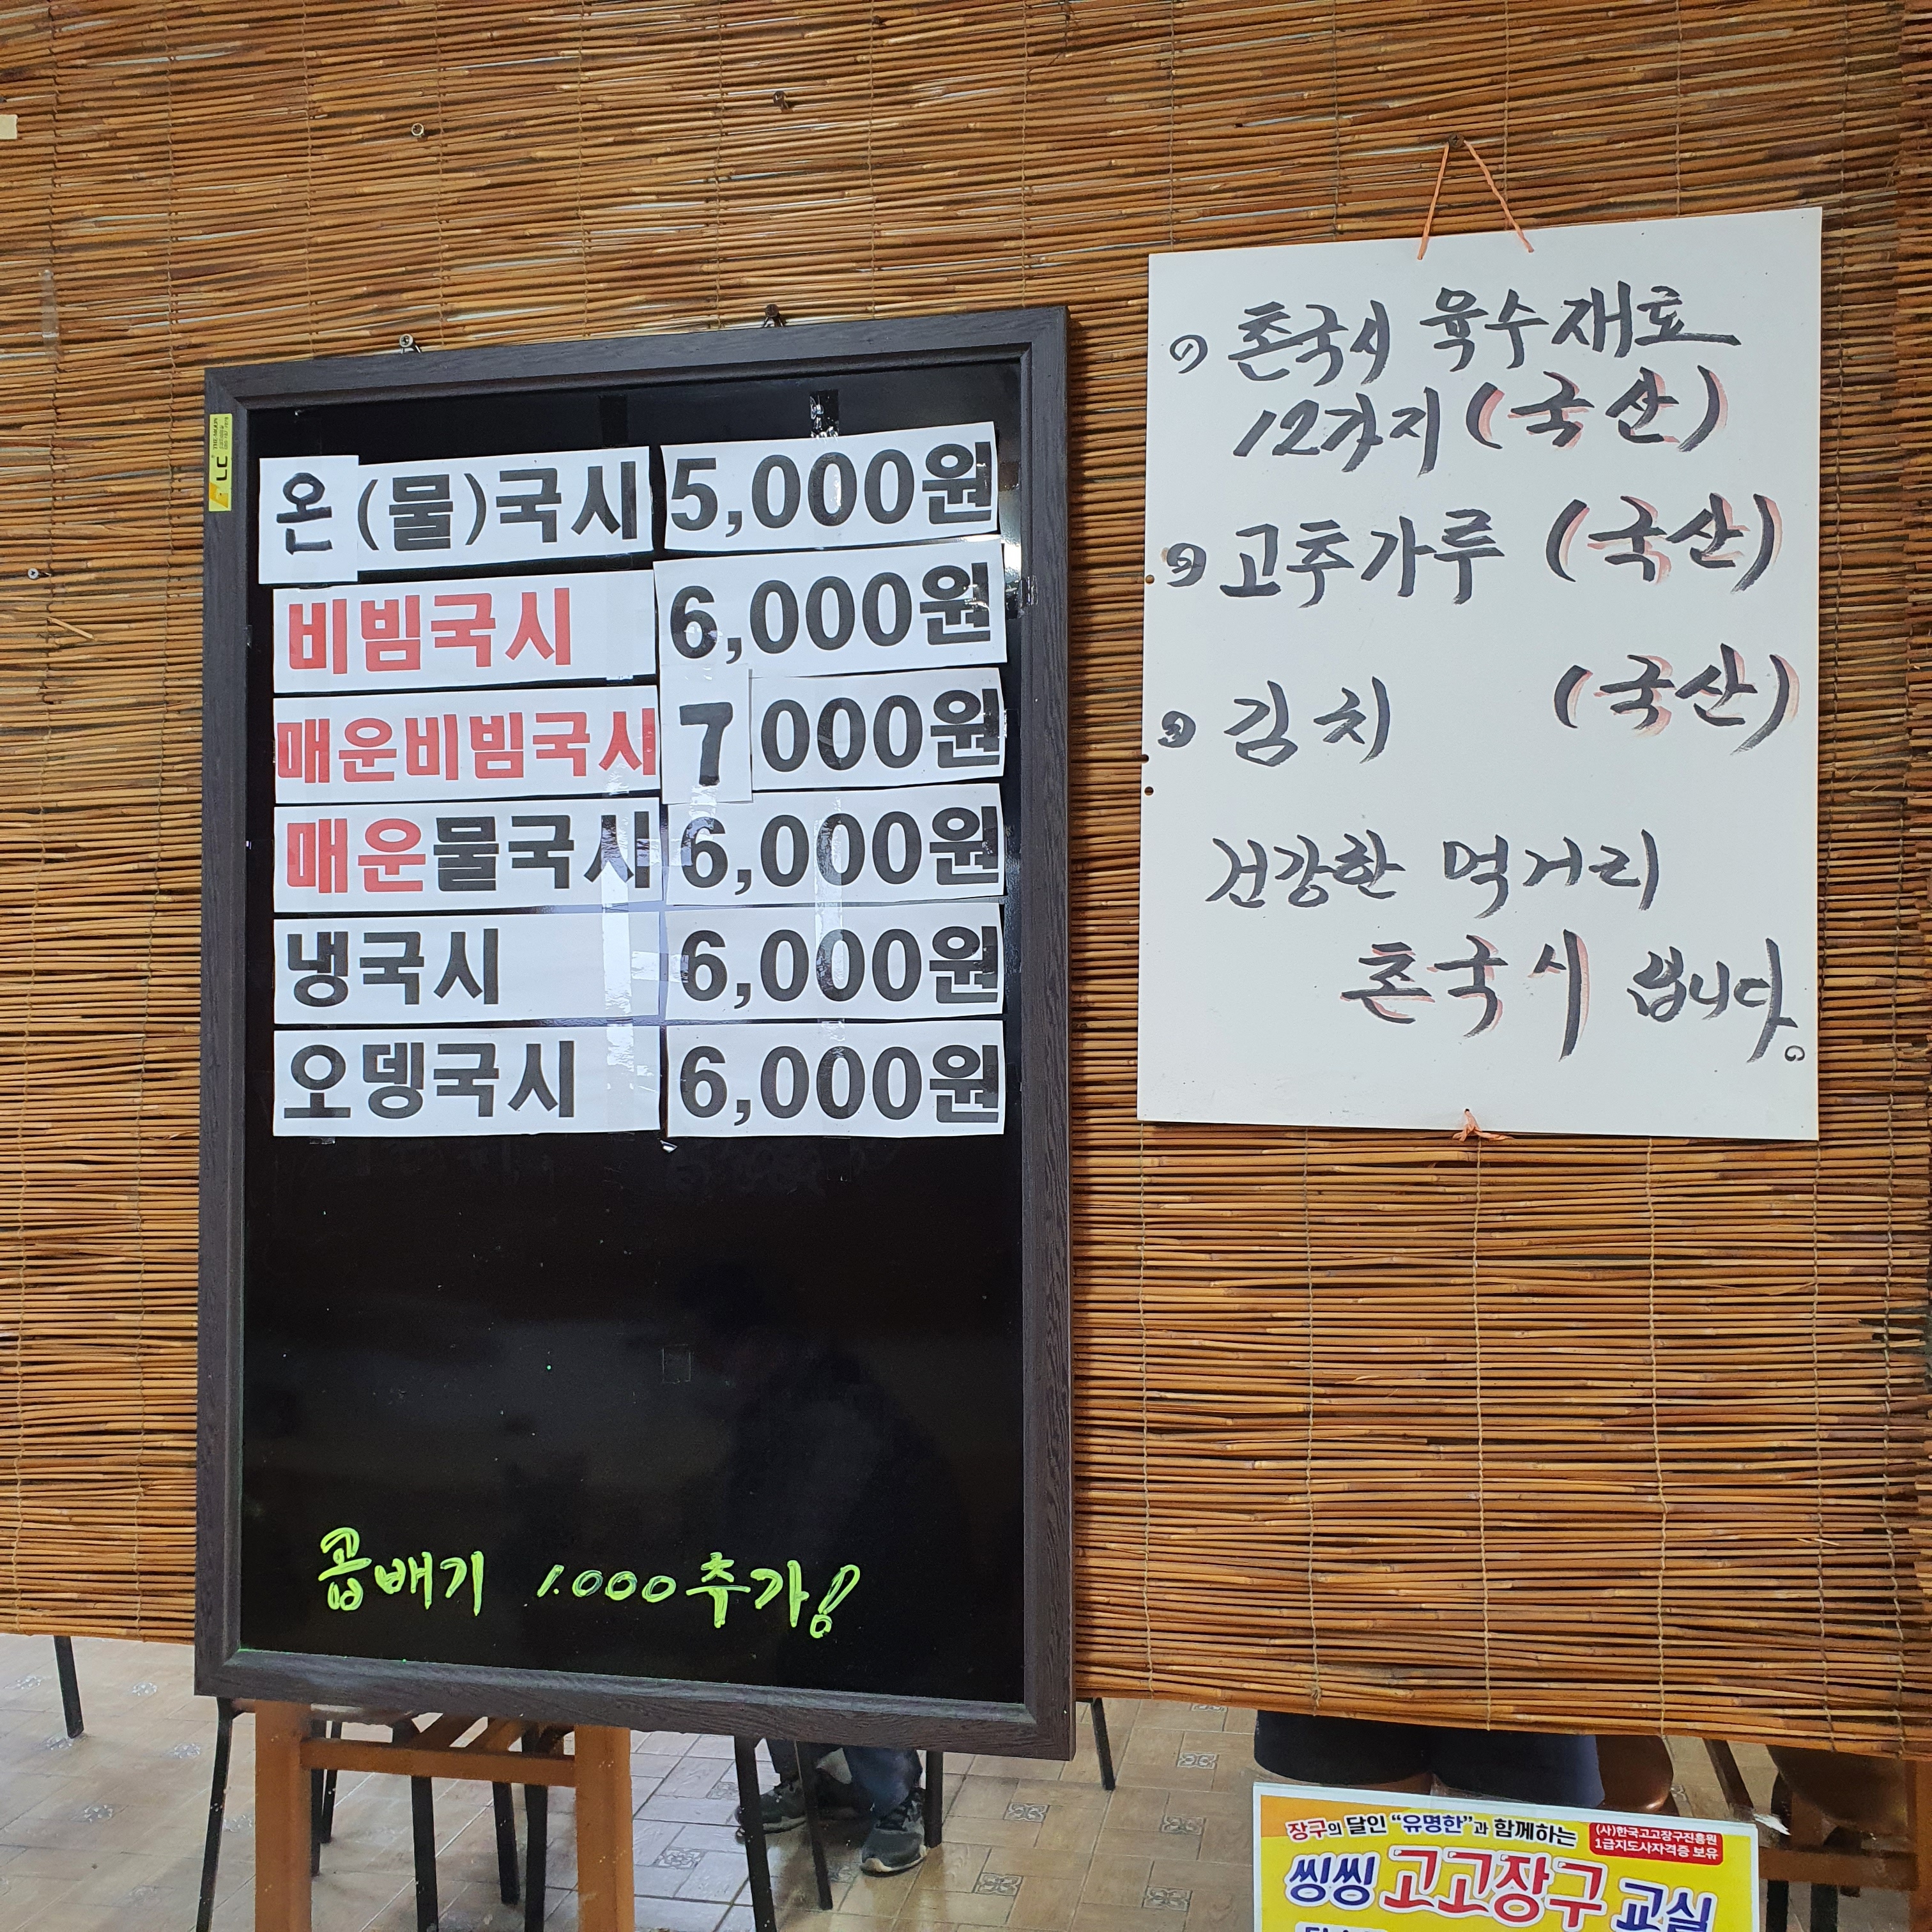 온(물)국시 5,000원
비빔국시 6,000원
매운비빔국시 7 000원
매운물국시 6,000원
냉국시 6,000원
오뎅국시 6,000원
곱배기 1.000추가!
① 촌국시 육수재료
12가지 (국산)
② 고추가루 (국산)
③ 김치 (국산)
건강한 먹거리
촌국시 입니다.
장구의 달인 “유명한”과 함께하는
(사)한국고고장구진흥원
1급지도사자격증 보유
씽씽 고고장구 교실